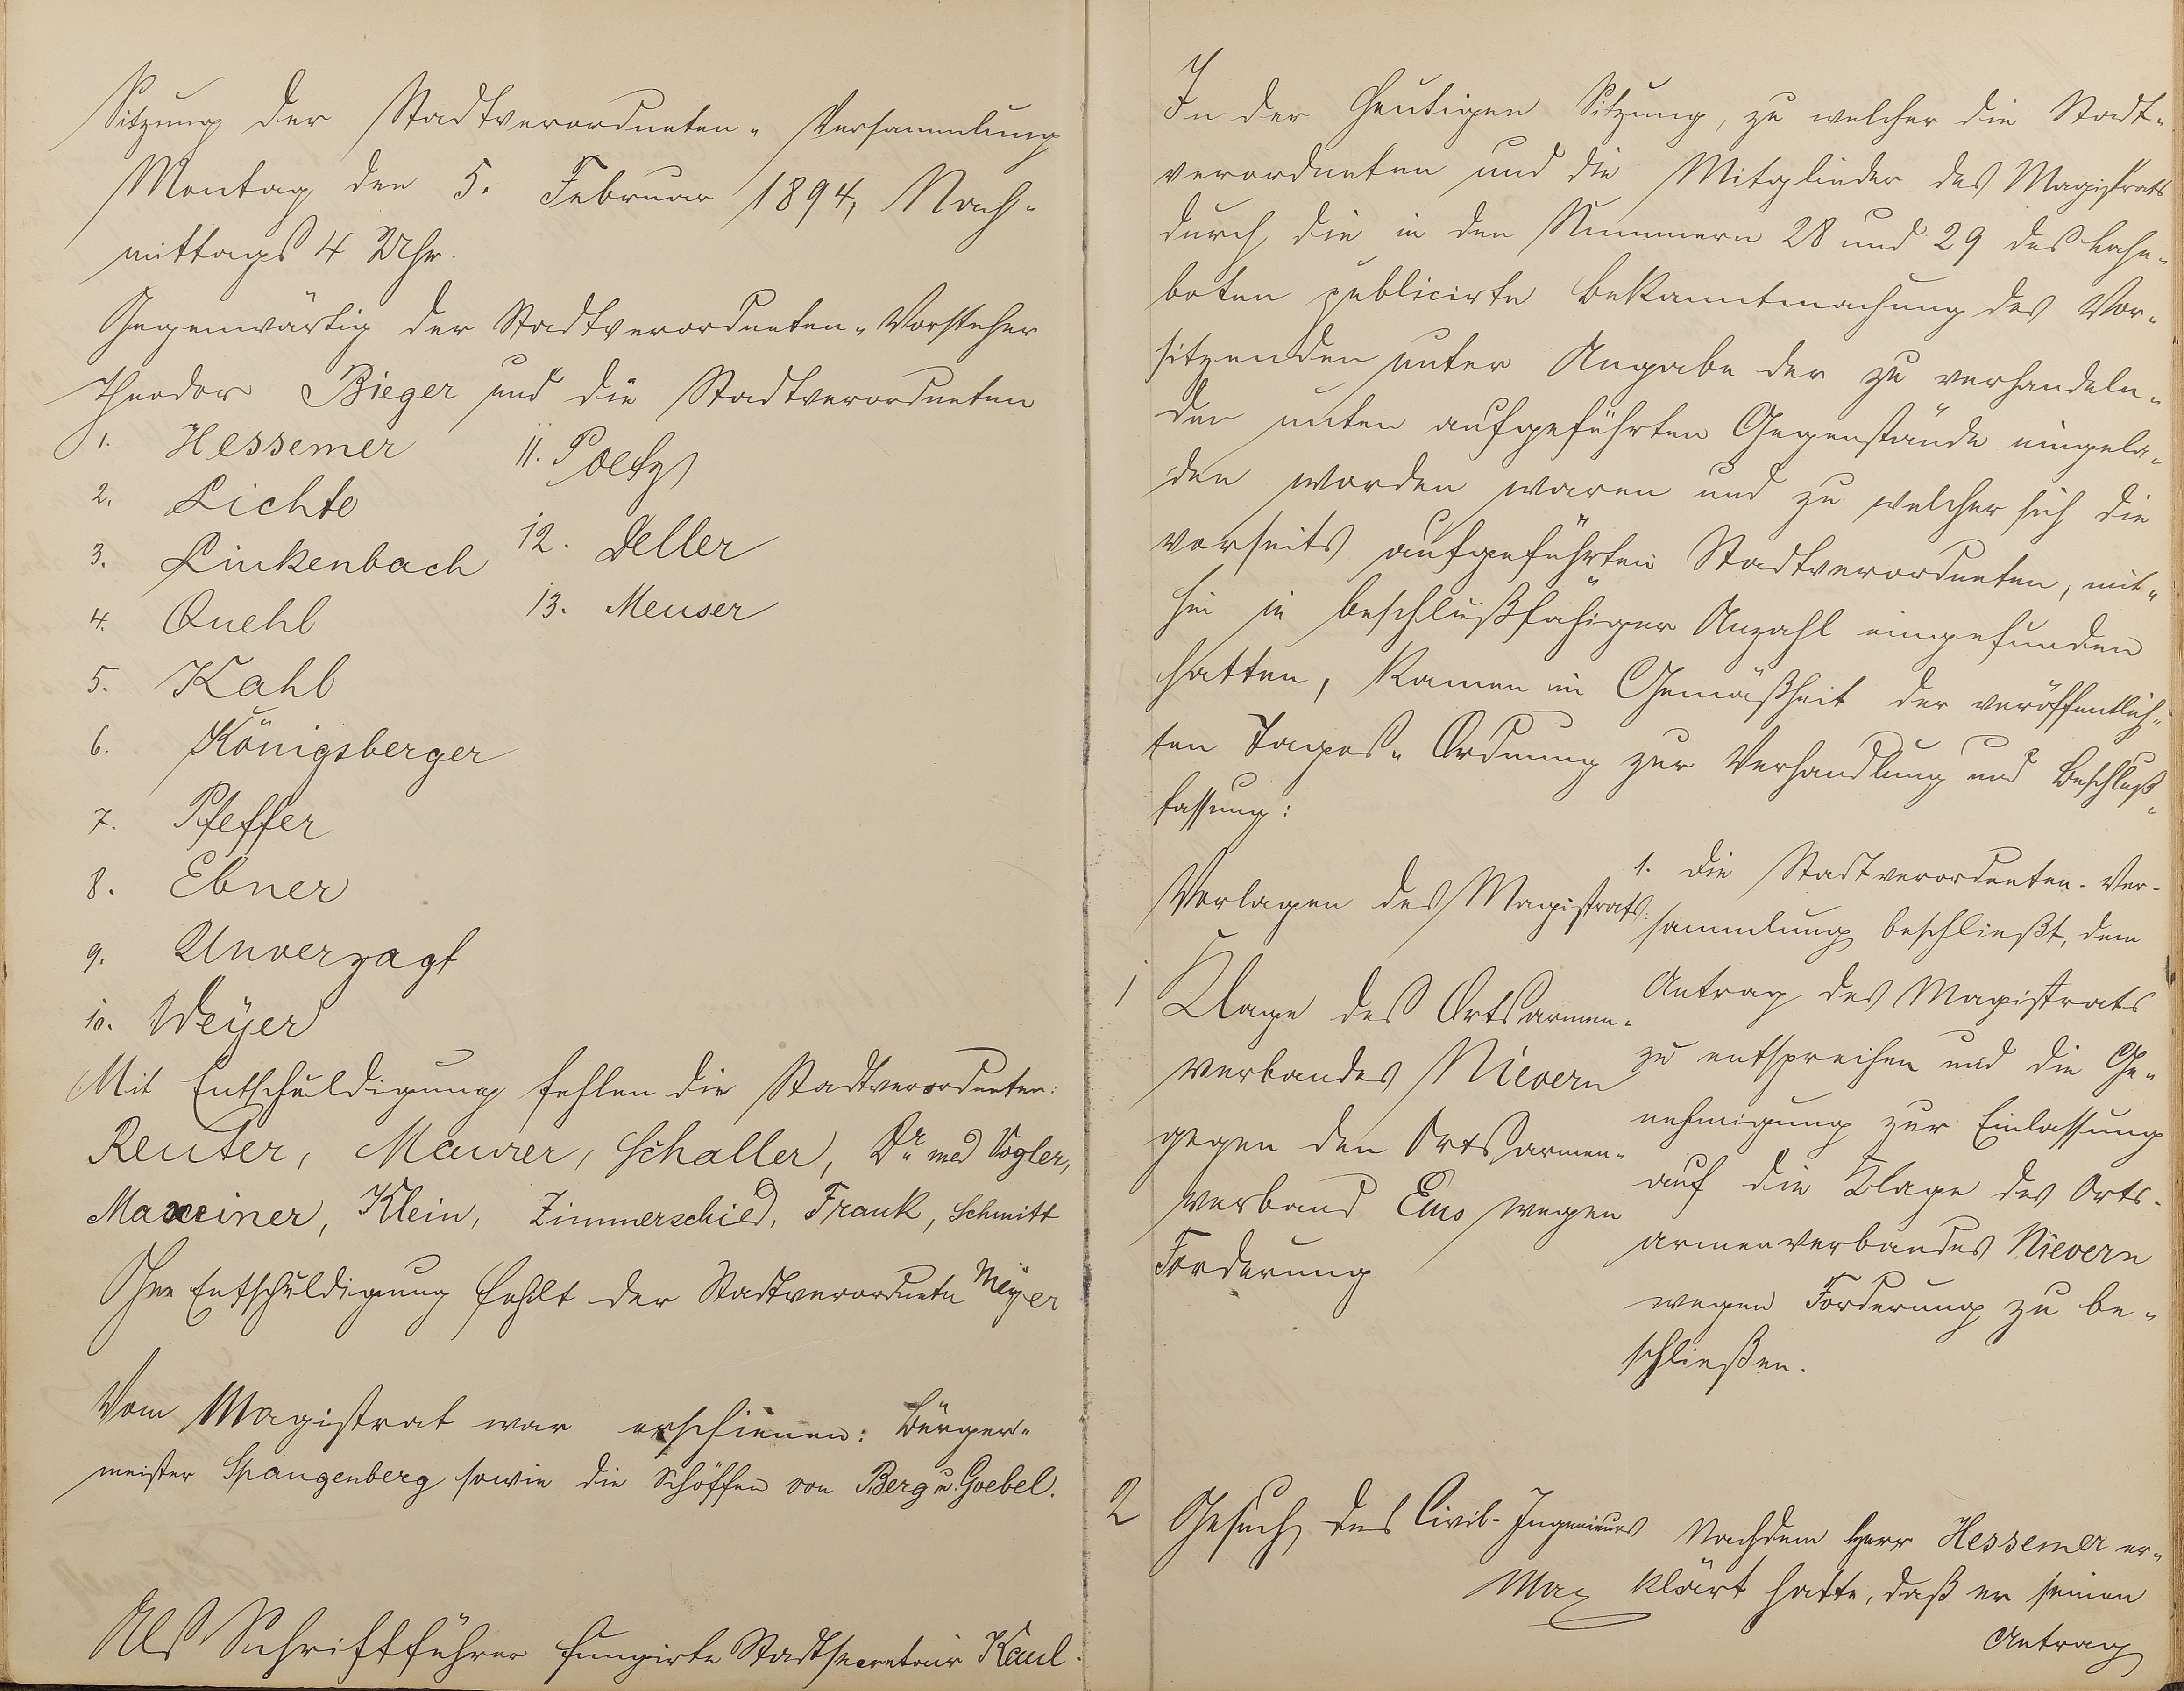 Sitzung der Stadtverordneten-Versammlung
Montag den 5. Februar 1894, Nach-
mittags 4 Uhr.
Gegenwärtig der Stadtverordneten-Vorsteher
Theodor Bieger und die Stadtverordneten
1. Hessemer
2. Lichte
3. Linkenbach
4. Quehl
5. Kahl
6. Königsberger
7. Pfeffer
8. Ebner
9. Unverzagt
10. Weyer
11. Poetz
12. Deller
13. Meuser
Mit Entschuldigung fehlen die Stadtverordneten:
Reuter, Maurer, Schaller, Dr. med Vogler,
Maxeiner, Klein, Zimmerschied, Frank, Schmitt
Ohne Entschuldigung fehlt der Stadtverordnete Meyer
Vom Magistrat war erschienen: Bürger-
meister Spangenberg sowie die Schöffen von Berg u. Goebel.
Als Schriftführer fungirte Stadtsecretair Kaul.
In der heutigen Sitzung, zu welcher die Stadt-
verordneten und die Mitglieder des Magistrats
durch die in den Nummern 28 und 29 des Lahn-
boten publicirte Bekanntmachung des Vor-
sitzenden unter Angabe der zu verhandeln-
den unten aufgeführten Gegenstände eingela-
den worden waren und zu welcher sich die
vorseits aufgeführten Stadtverordneten, mit-
hin in beschlußfähiger Anzahl eingefunden
hatten, kamen in Gemäßheit der veröffentlich-
ten Tages-Ordnung zur Verhandlung und Beschluß-
fassung:
Vorlagen des Magistrats:
1 Klage des Ortsarmen-
verbandes Nievern
gegen den Ortsarmen-
verband Ems wegen
Forderung
1. Die Stadtverordneten-Ver-
sammlung beschließt, dem
Antrag des Magistrats
zu entsprechen und die Ge-
nehmigung zur Einlassung
auf die Klage des Orts-
armenverbandes Nievern
wegen Forderung zu be-
schließen.
2 Gesuch des Civil-Ingenieurs
Max
Nachdem Herr Hessemer er-
klärt hatte, daß er seinen
Antrag